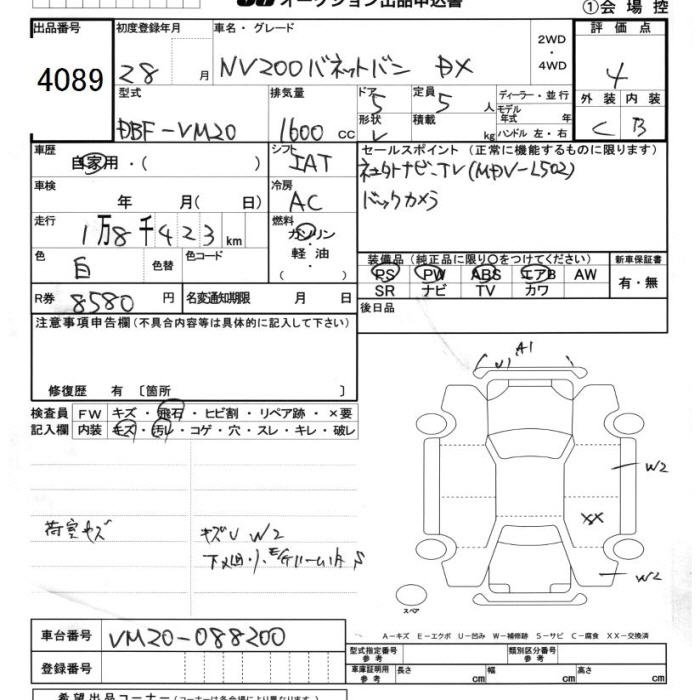 オークション出品申込書
①会場控
出品番号 4089
初度登録年月 28 月
車名・グレード NV200バネットバン DX
2WD・4WD
評価点 4
外装 C 内装 B
型式 DBF-VM20
排気量 1600 cc
ドア 5
形状 V
定員 5 人
積載 kg
ディーラー・並行
モデル年式 年
ハンドル 左・右
車歴 自家用・( )
シフト IAT
セールスポイント(正常に機能するものに限ります)
バックカメラ
車検 年 月( 日)
冷房 AC
走行 1万8千423km
燃料 ガソリン・軽油・( )
色 白 色替
色コード
装備品(純正品に限り○をつけてください)
PS PW ABS エアB AW
SR ナビ TV カワ
新車保証書 有・無
R券 8580円
名変通知期限 月 日
後日品
注意事項申告欄(不具合内容等は具体的に記入して下さい)
修復歴 有〔箇所 〕
検査員記入欄
FW キズ・飛石・ヒビ割・リペア跡・×要
内装 キズ・汚レ・コゲ・穴・スレ・キレ・破レ
A1
U
W2
XX
W2
荷室キズ
キズU W2
スペア
A-キズ E-エクボ U-凹み W-補修跡 S-サビ C-腐食 XX-交換済
車台番号 VM20-088200
登録番号
型式指定番号 参考
類別区分番号 参考
車庫証明用 参考
長さ cm 幅 cm 高さ cm
希望出品コーナー(コーナーは各会場により異なります)